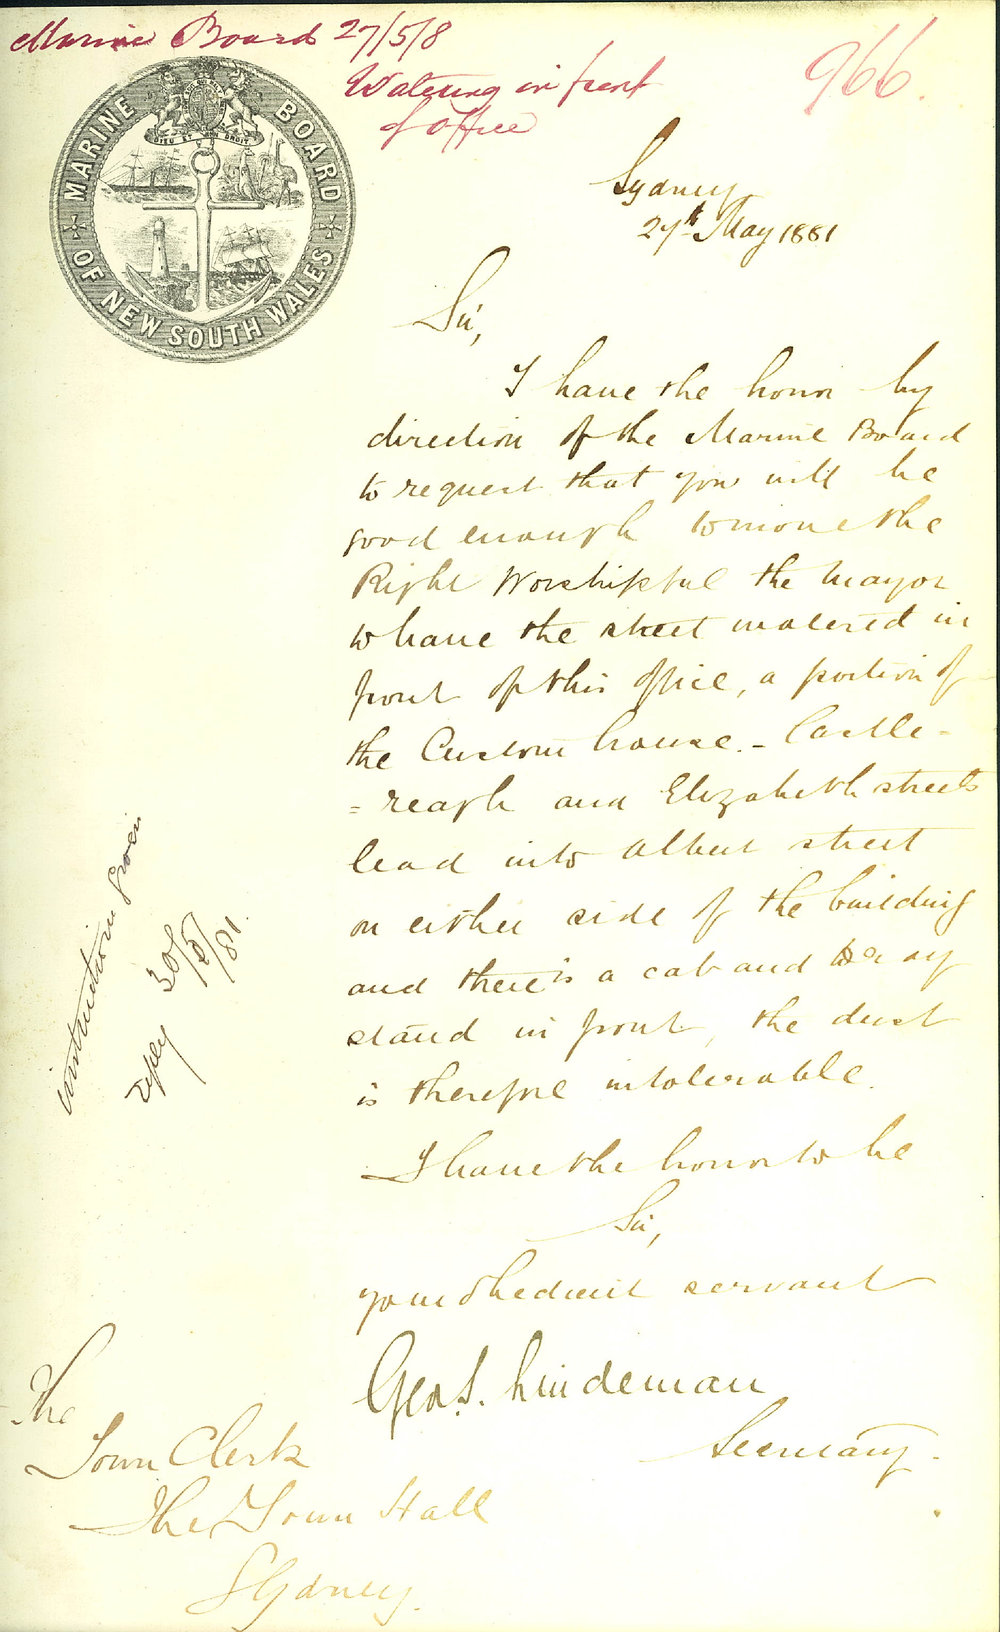 Marine Board 27/5/8
Watering in front
of office
966.
MARINE BOARD
OF NEW SOUTH WALES
DIEU ET MON DROIT
Sydney
27th May 1881
Sir,
I have the honor by
direction of the Marine Board
to request that you will be
good enough to move the
Right Worshipful the Mayor
to have the street watered in
front of this office, a portion of
the Custom house. - Castle-
=reagh and Elizabeth streets
lead into Albert street
on either side of the building
and there is a cab and dray
stand in front, the dust
is therefore intolerable.
I have the honor to be
Sir,
your obedient servant
Geo. S. Lindeman
Secretary.
instructions given
30/5/81.
The
Town Clerk
The Town Hall
Sydney.